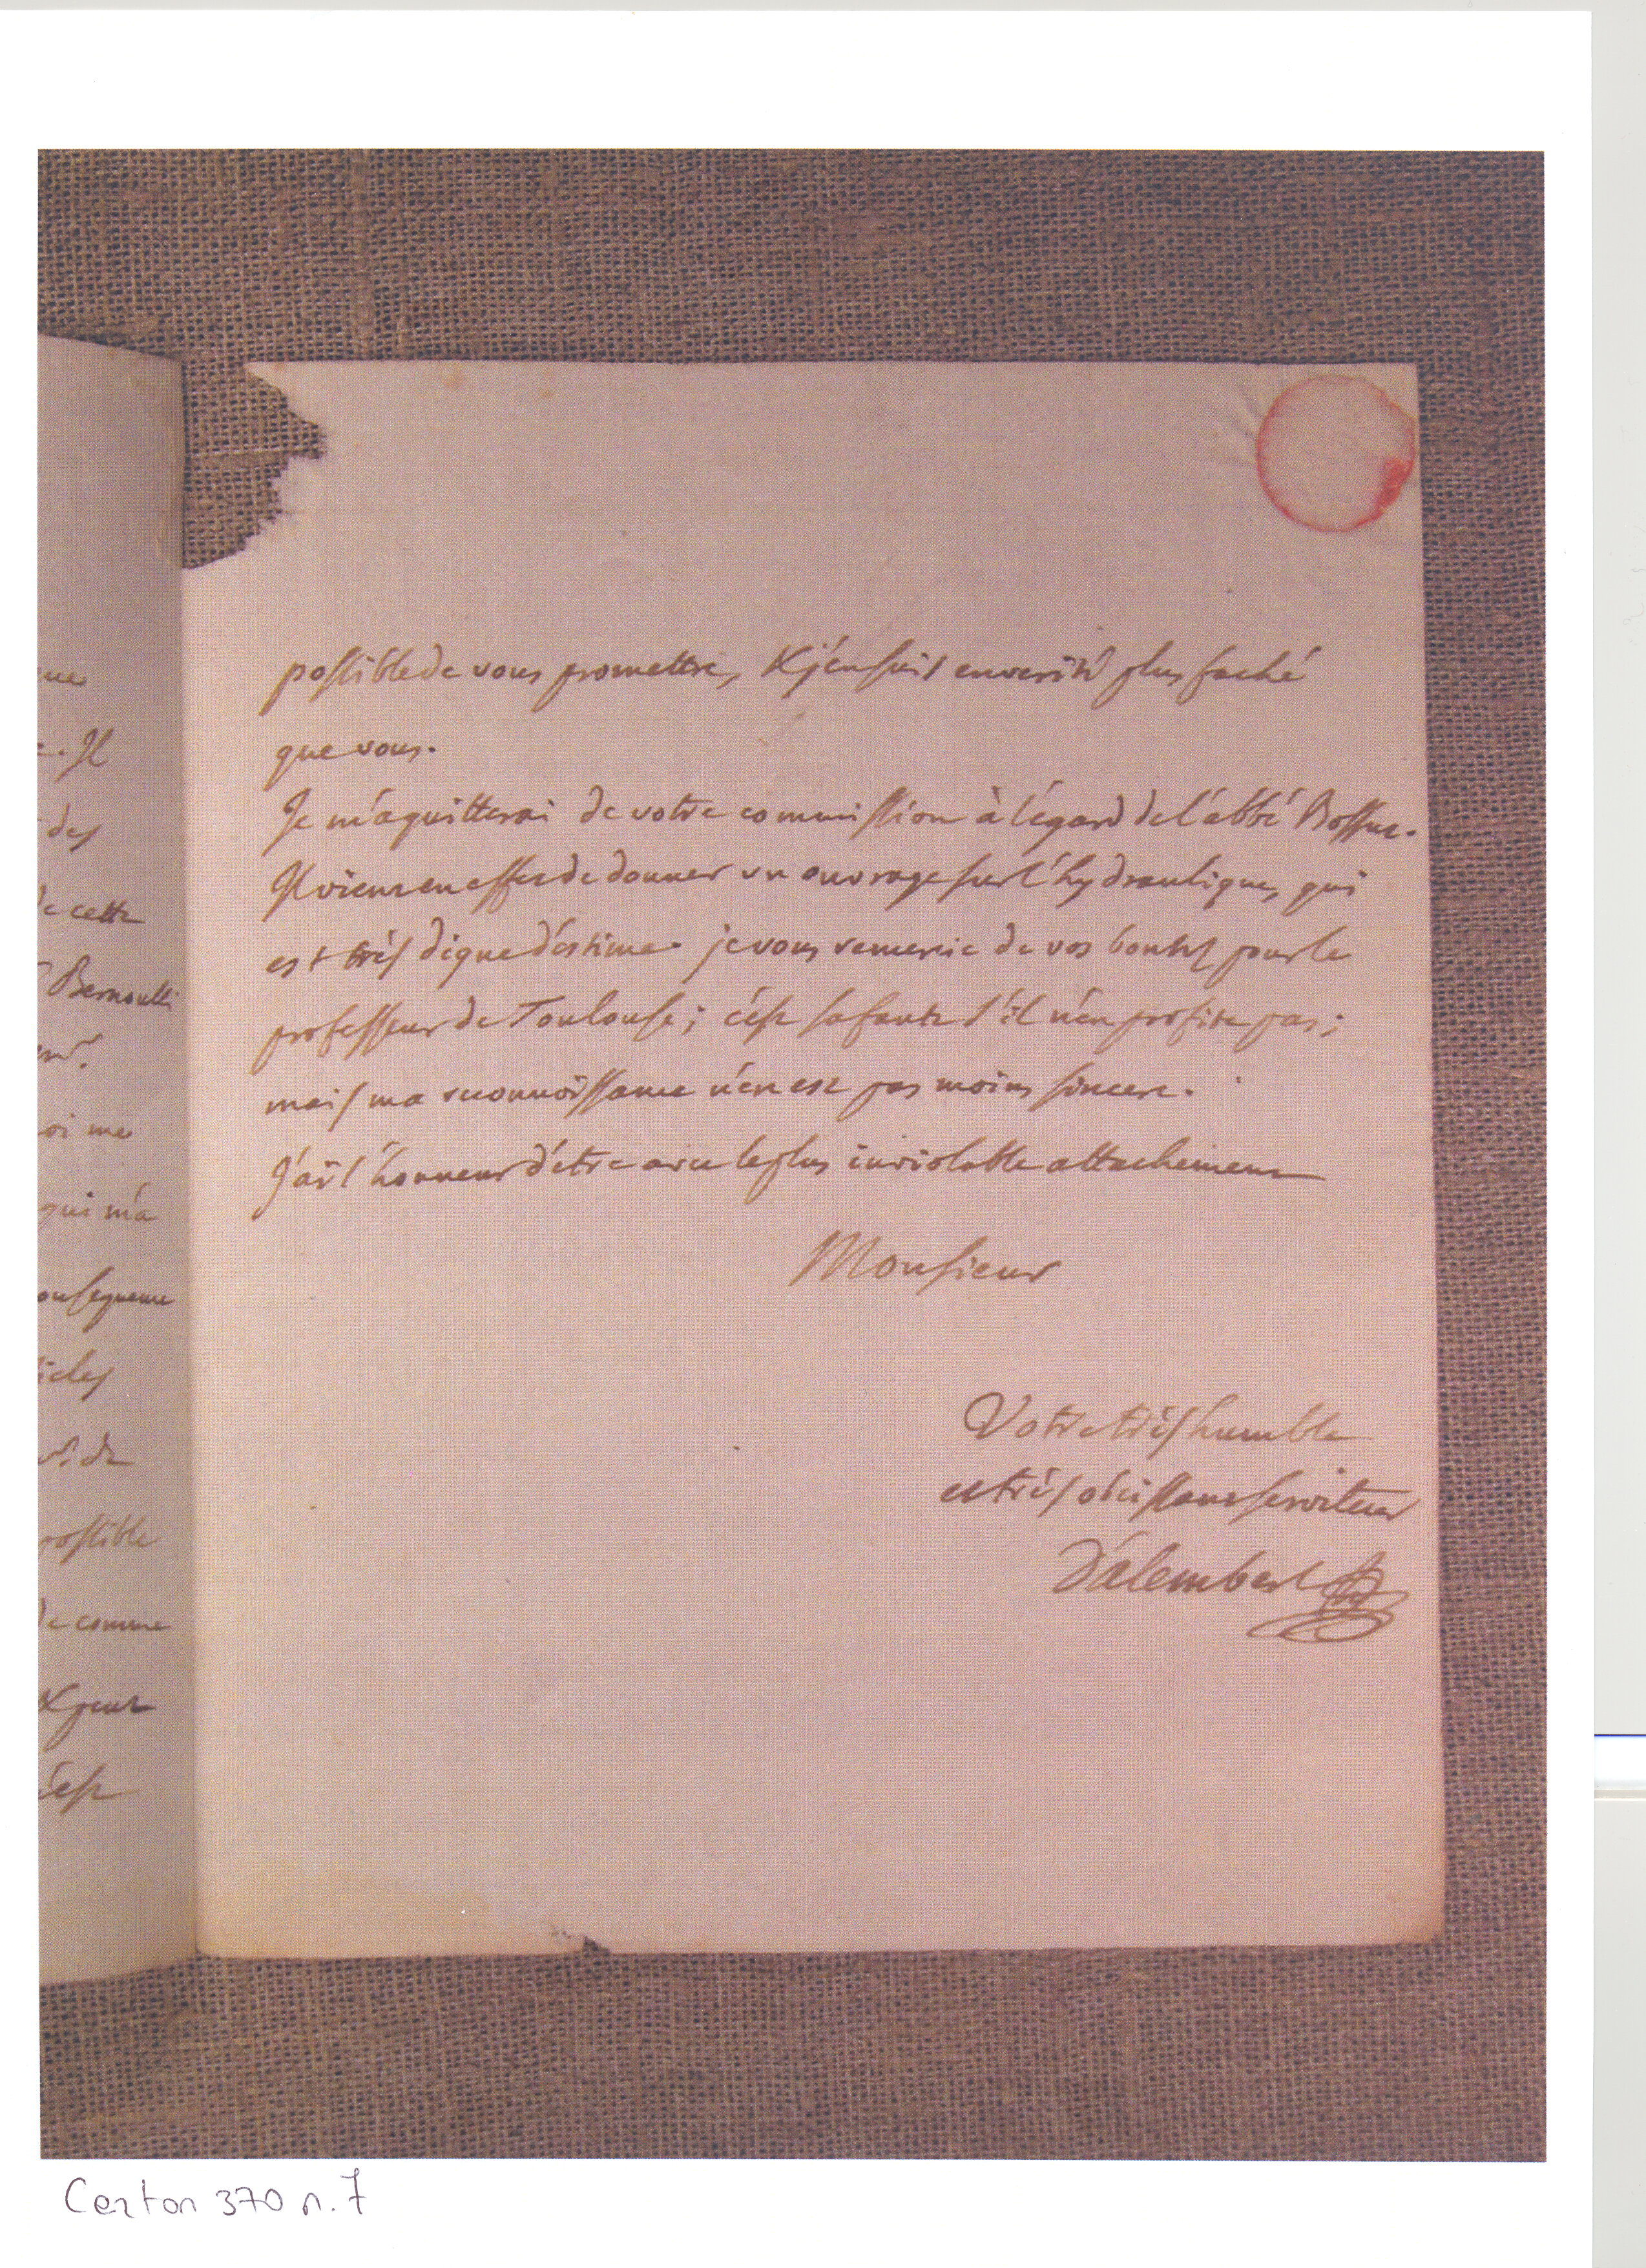 ue
. Il
des
de cette
Bernoulli
mr.
oi me
qui m'a
onsequence
icles
vr. de
possible
de comme
& peut
c'est
possible de vous promettre, & j'en suis en verité plus faché
que vous.
Je m'aquitterai de votre commission à l'égard de l'abbé Bossut.
Il vient en effet de donner un ouvrage sur l'hydraulique, qui
est très digne d'estime. je vous remercie de vos bontés pour le
professeur de Toulouse; c'est sa faute s'il n'en profite pas;
mais ma reconnoissance n'en est pas moins sincere.
J'ai l'honneur d'etre avec le plus inviolable attachement
Monsieur
Votre très humble
et très obeissant serviteur
D'alembert
Carton 370 n. 7